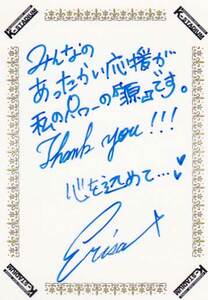 K-STADIUM
K-STADIUM
みんなの
あったかい応援が
私のパワーの源です。
Thank you!!!
心を込めて…♥
Erisa
K-STADIUM
K-STADIUM